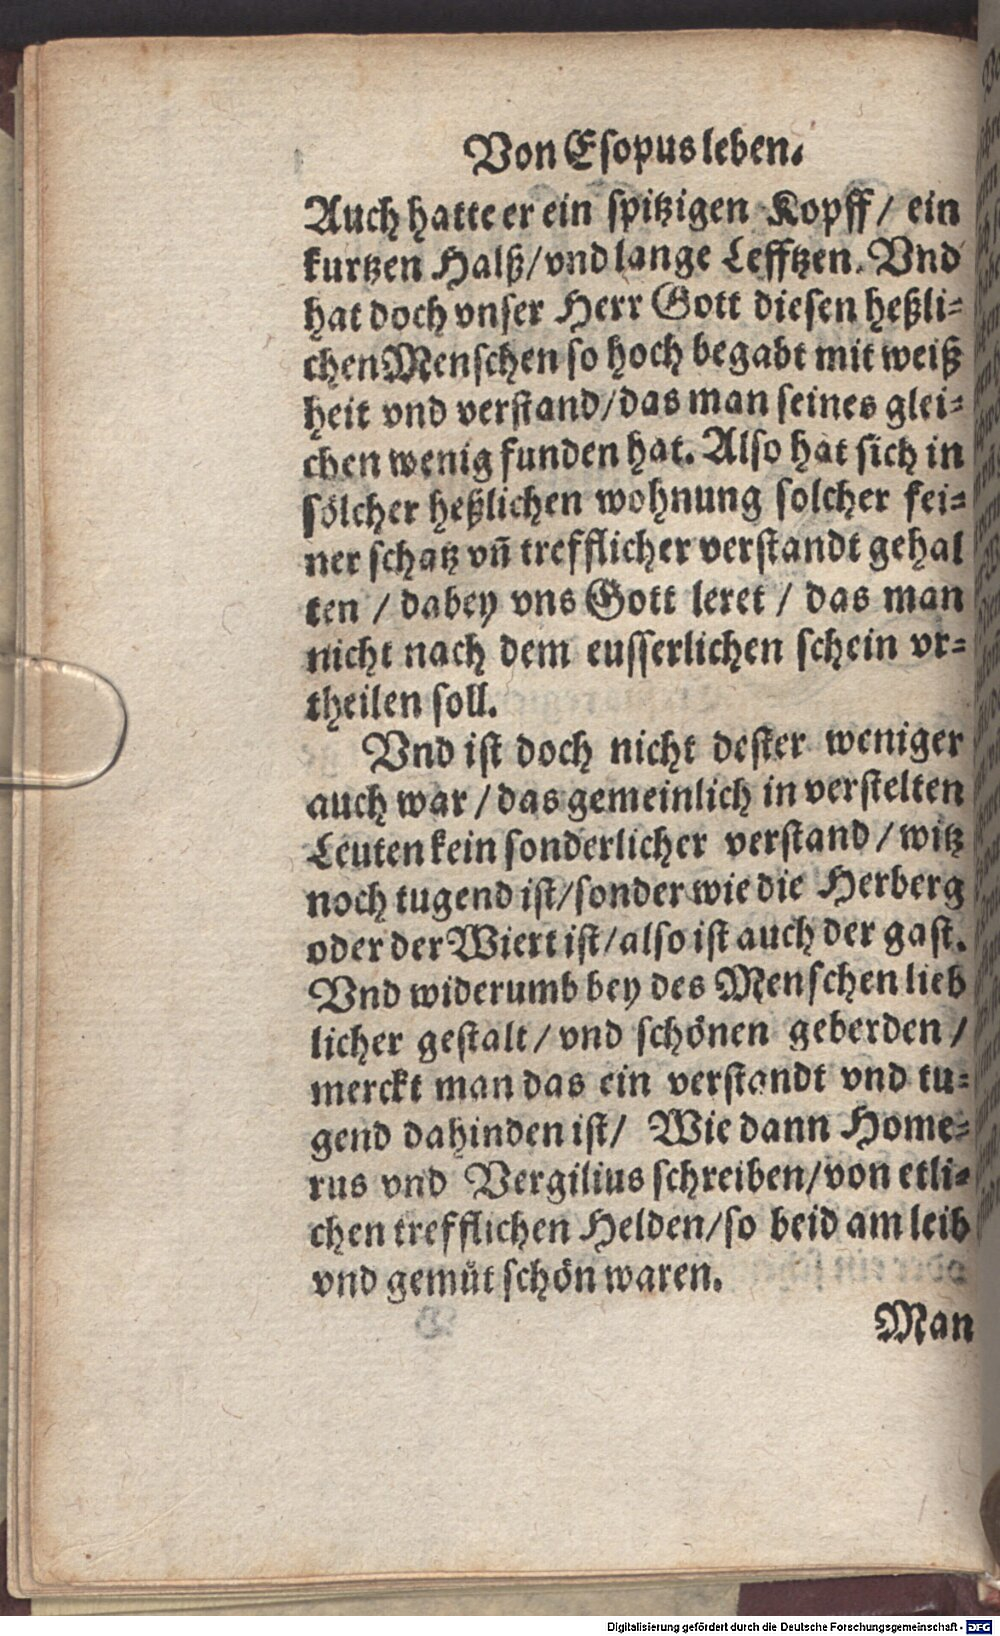 Von Esopus leben.
Auch hatte er ein spitzigen Kopff / ein
kurtzen Halß / vnd lange Lefftzen. Vnd
hat doch vnser Herr Gott diesen heßli⸗
chen Menschen so hoch begabt mit weiß
heit vnd verstand / das man seines glei⸗
chen wenig funden hat. Also hat sich in
sölcher heßlichen wohnung solcher fei⸗
ner schatz vñ trefflicher verstandt gehal
ten / dabey vns Gott leret / das man
nicht nach dem eusserlichen schein vr⸗
theilen soll.
Vnd ist doch nicht dester weniger
auch war / das gemeinlich in verstelten
Leuten kein sonderlicher verstand / witz
noch tugend ist / sonder wie die Herberg
oder der Wiert ist / also ist auch der gast.
Vnd widerumb bey des Menschen lieb
licher gestalt / vnd schönen geberden /
merckt man das ein verstandt vnd tu⸗
gend dahinden ist / Wie dann Home⸗
rus vnd Vergilius schreiben / von etli⸗
chen trefflichen Helden / so beid am leib
vnd gemüt schön waren.
Man
Digitalisierung gefördert durch die Deutsche Forschungsgemeinschaft - DFG